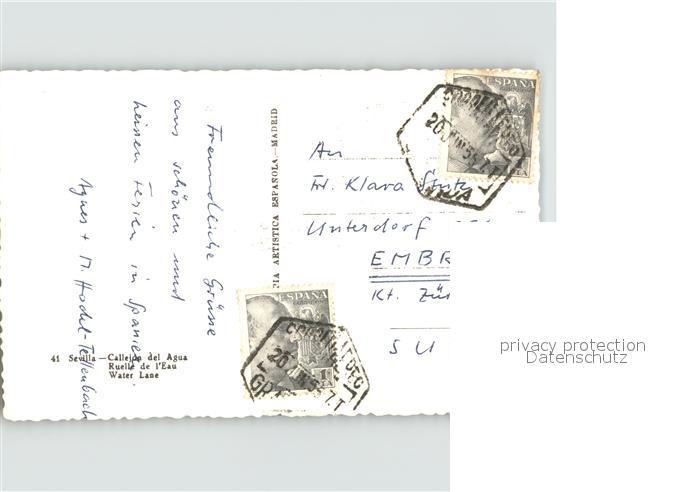 Freundliche Grüsse
aus schönen und
heissen Ferien in Spanien.
Agnes + M. Hodel-
41 Sevilla — Callejon del Agua
Ruelle de l'Eau
Water Lane
ARTISTICA ESPAÑOLA — MADRID
An
Fr. Klara
Unterdorf
EMBR
Kt. Zür
SU
ESPAÑA
ESPAÑA
privacy protection
Datenschutz